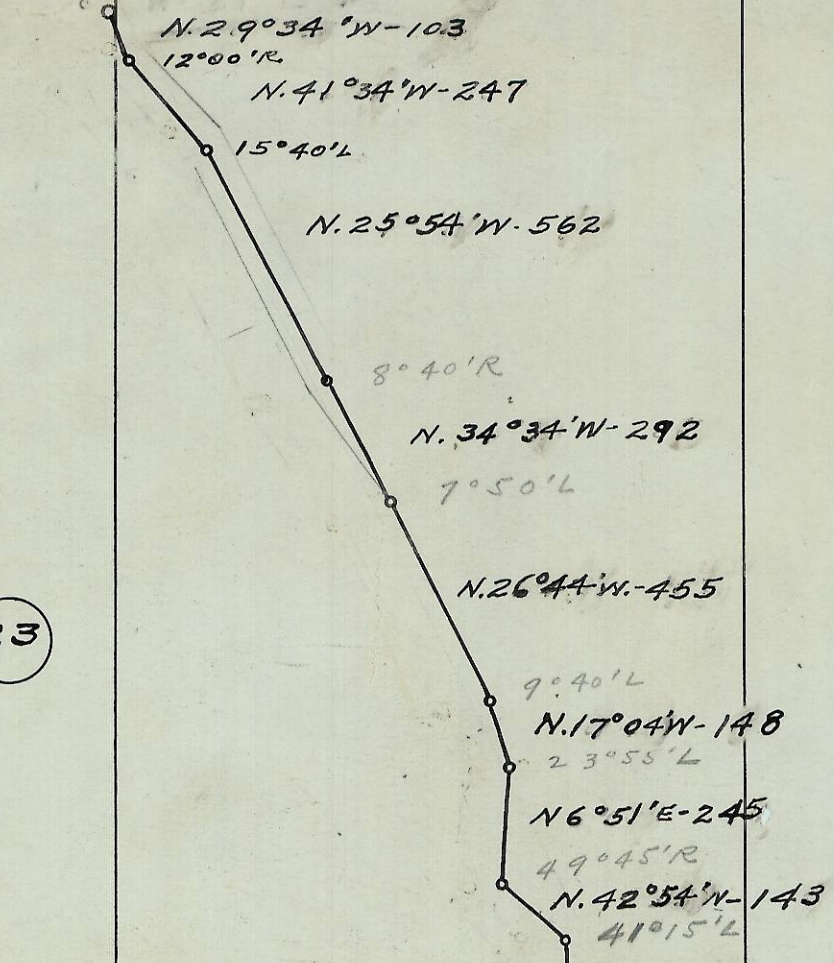 N.29°34'W-103
12°00'R.
N.41°34'W-247
15°40'L
N.25°54'W-562
8°40'R
N.34°34'W-292
7°50'L
N.26°44'W.-455
23
9°40'L
N.17°04'W-148
23°55'L
N6°51'E-245
49°45'R
N.42°54'W-143
41°15'L